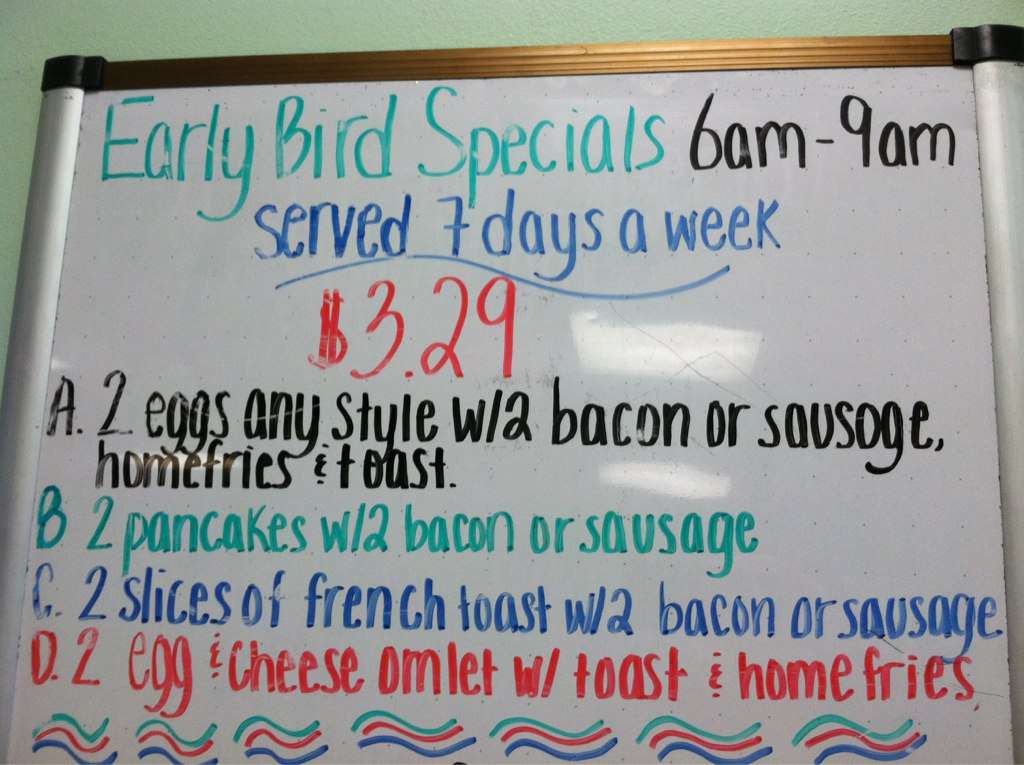 Early Bird Specials 6am-9am
served 7 days a week
$3.29
A. 2 eggs any style w/2 bacon or sausage,
homefries & toast.
B 2 pancakes w/2 bacon or sausage
C. 2 slices of french toast w/2 bacon or sausage
D. 2 egg & cheese omlet w/ toast & homefries